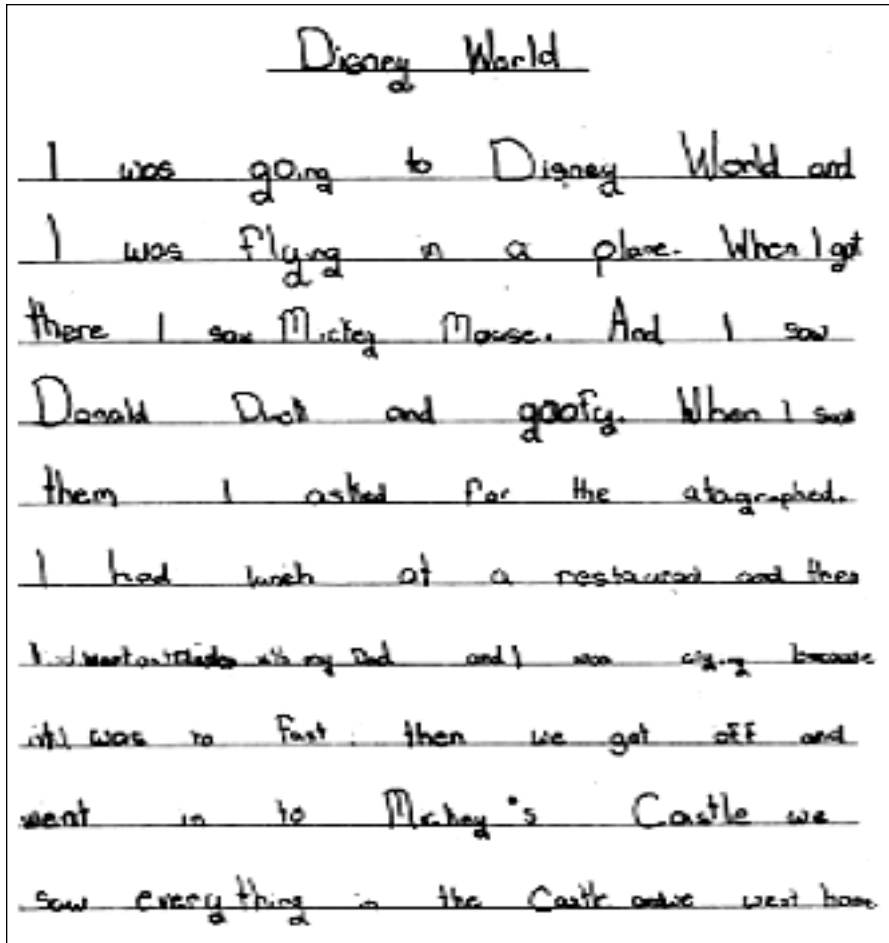 Disney World
I was going to Disney World and
I was flying in a plane. When I got
there I saw Mickey Mouse. And I saw
Donald Duck and goofy. When I saw
them I asked for the atagraphed.
I had lunch at a restaurant and then
with my Dad and I was crying because
was to fast. then we got off and
went in to Mickey's Castle we
saw everything in the Castle and we went home